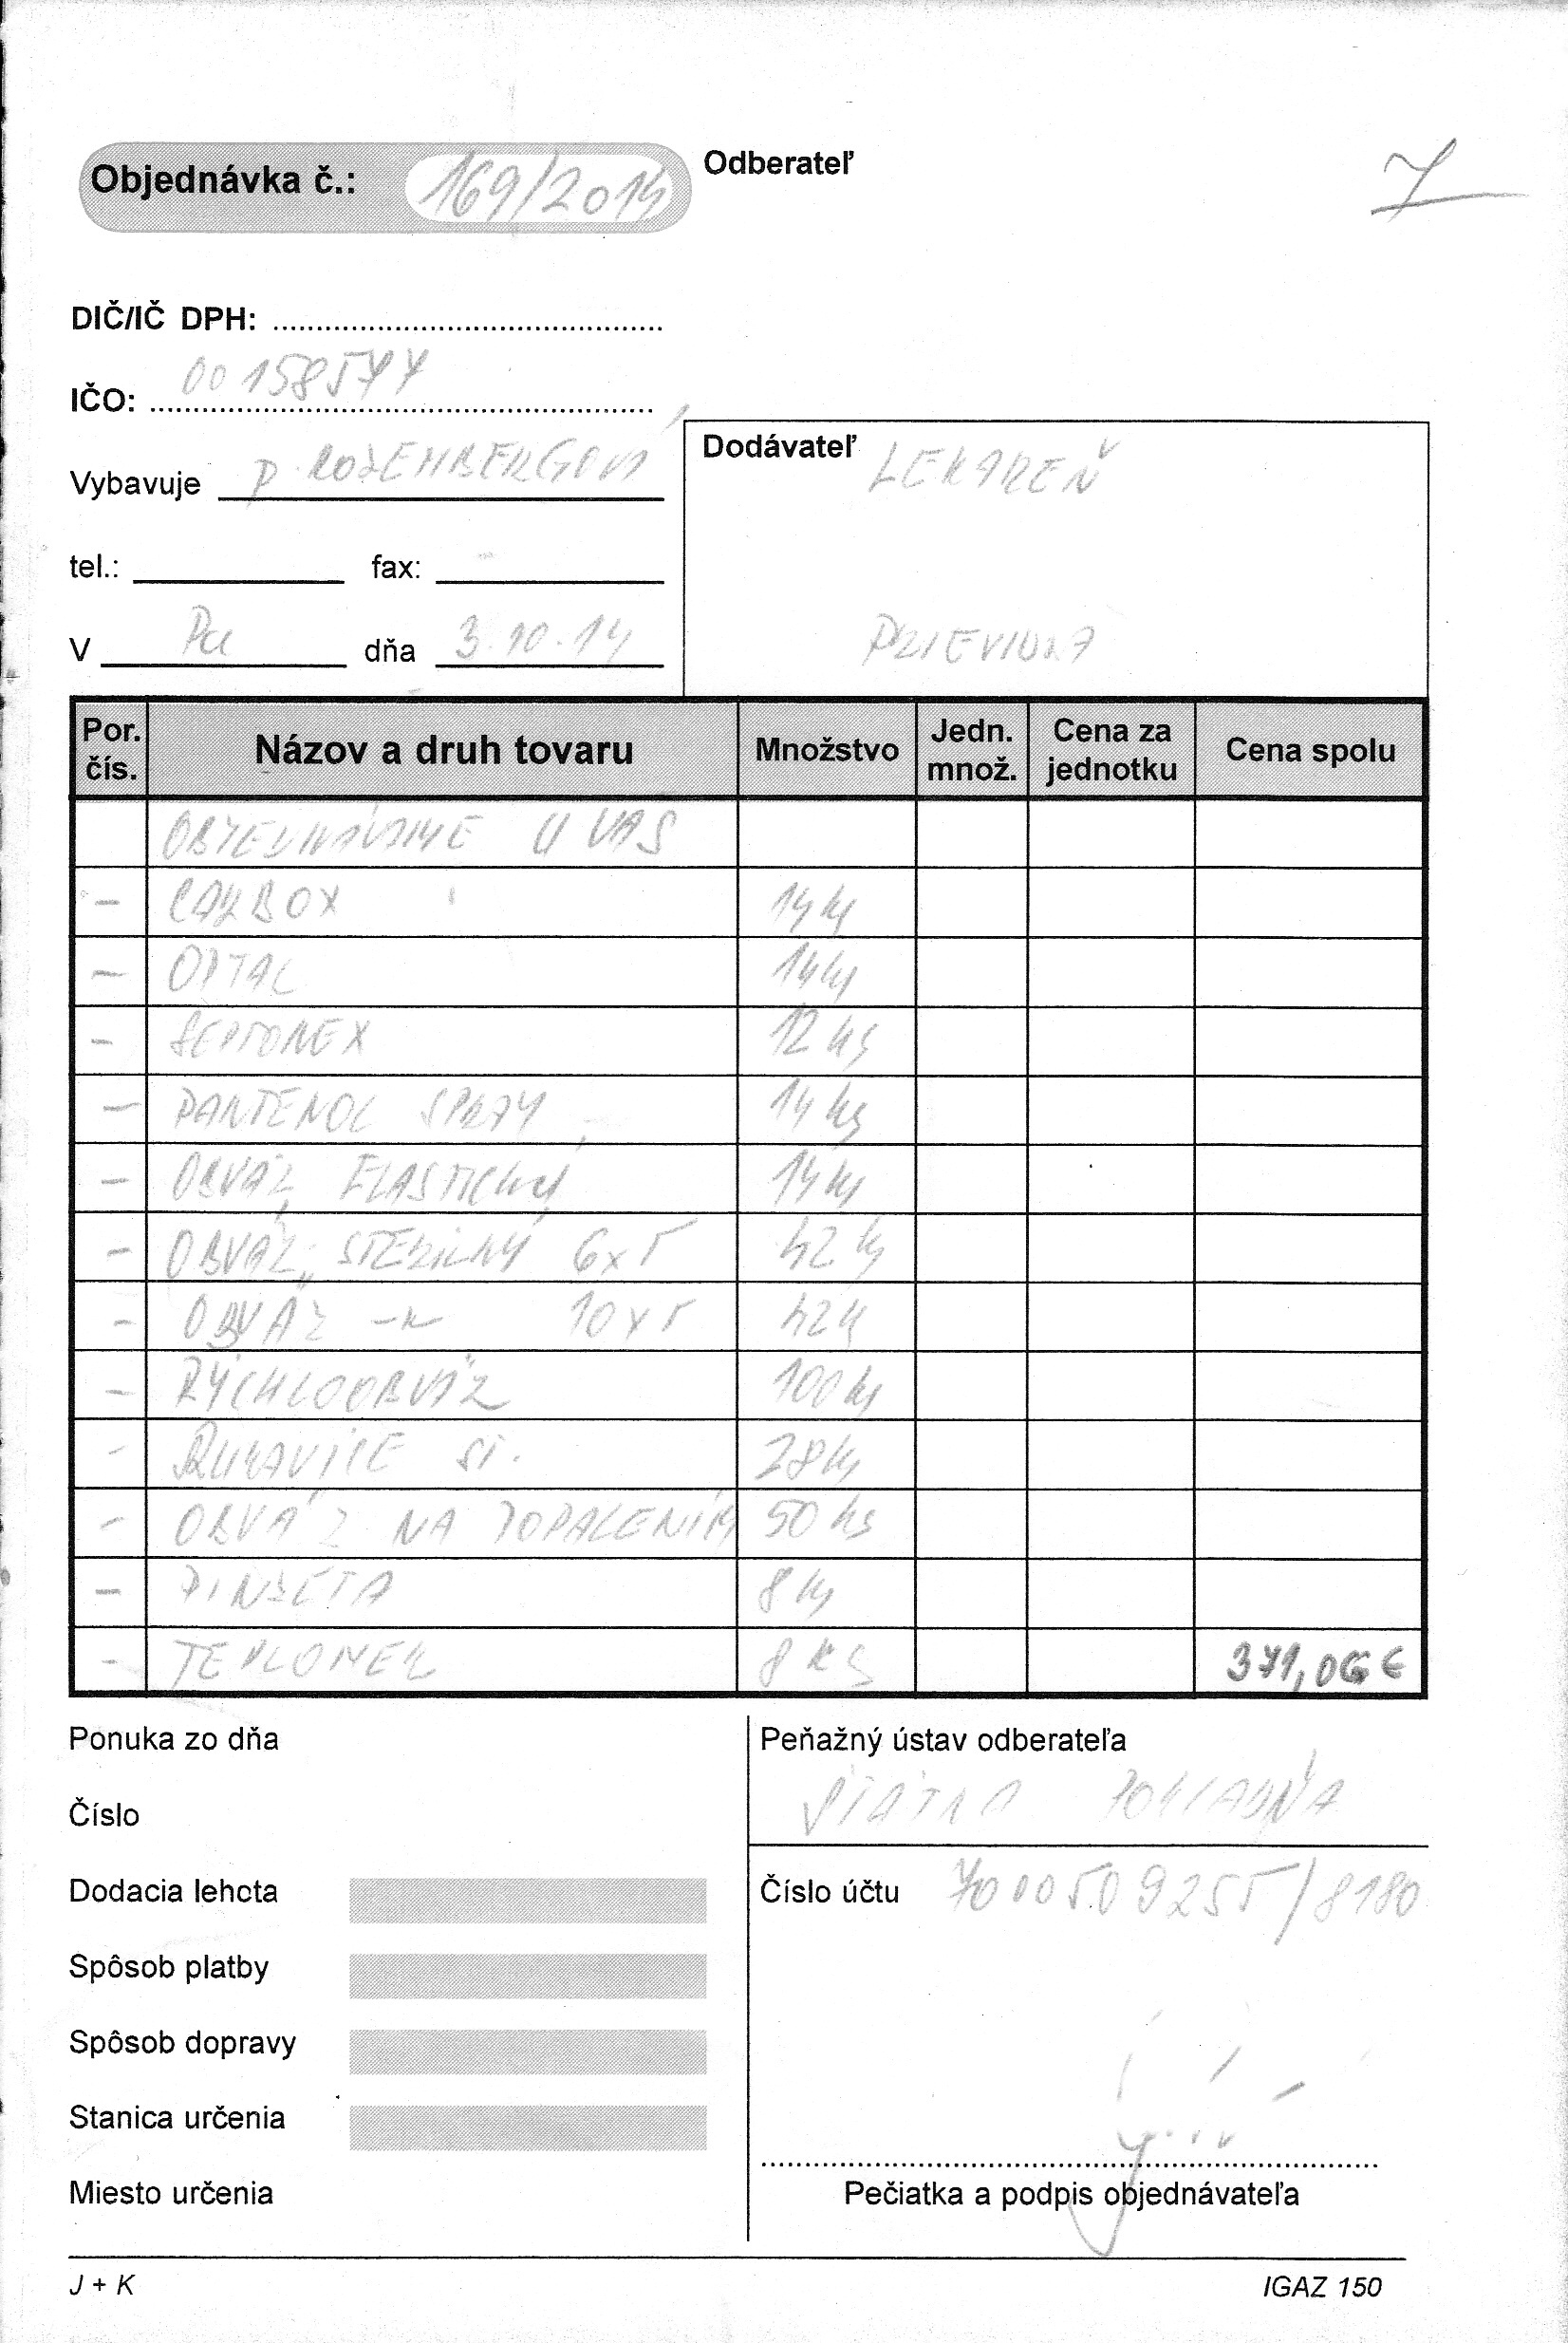 Objednávka č.: 169/2014
Odberateľ
7
DIČ/IČ DPH:
IČO: 00158577
Vybavuje p. ROZEMBERGOVÁ
Dodávateľ LEKÁREŇ
tel.: fax:
V Pu dňa 3.10.14
PRIEVIDZA
Por. čís. Názov a druh tovaru Množstvo Jedn. množ. Cena za jednotku Cena spolu
OBJEDNÁVAME U VÁS
- CARBOX 14 ks
- OPTAL 14 ks
- SEPTONEX 12 ks
- PANTENOL SPRAY 14 ks
- OBVÄZ ELASTICKÝ 14 ks
- OBVÄZ STERILNÝ 6x5 42 ks
- OBVÄZ -"- 10x5 42 ks
- RÝCHLOOBVÄZ 100 ks
- RUKAVICE ST. 28 ks
- OBVÄZ NA POPÁLENINY 50 ks
- PINZETA 8 ks
- TEPLOMER 8 KS 371,06 €
Ponuka zo dňa
Peňažný ústav odberateľa
ŠTÁTNA POKLADŇA
Číslo
Dodacia lehota
Číslo účtu 7000509255/8180
Spôsob platby
Spôsob dopravy
Stanica určenia
Miesto určenia
Pečiatka a podpis objednávateľa
J + K
IGAZ 150